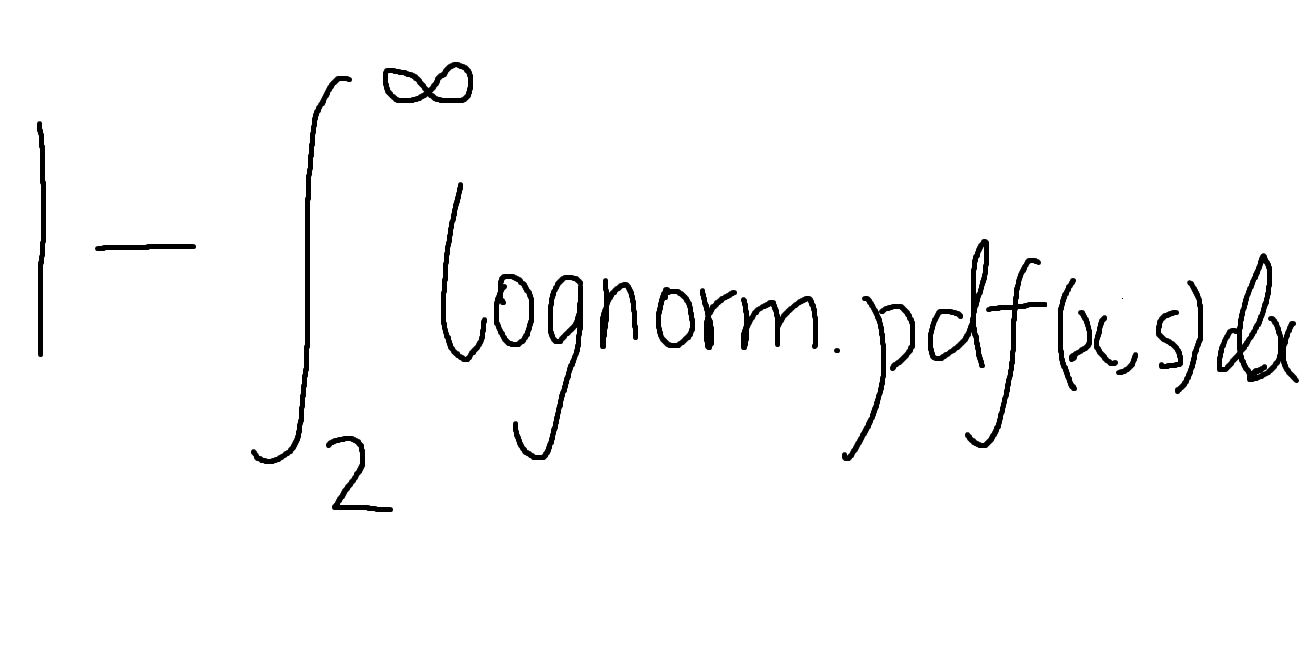 1 - ∫₂^∞ lognorm.pdf(x,s)dx